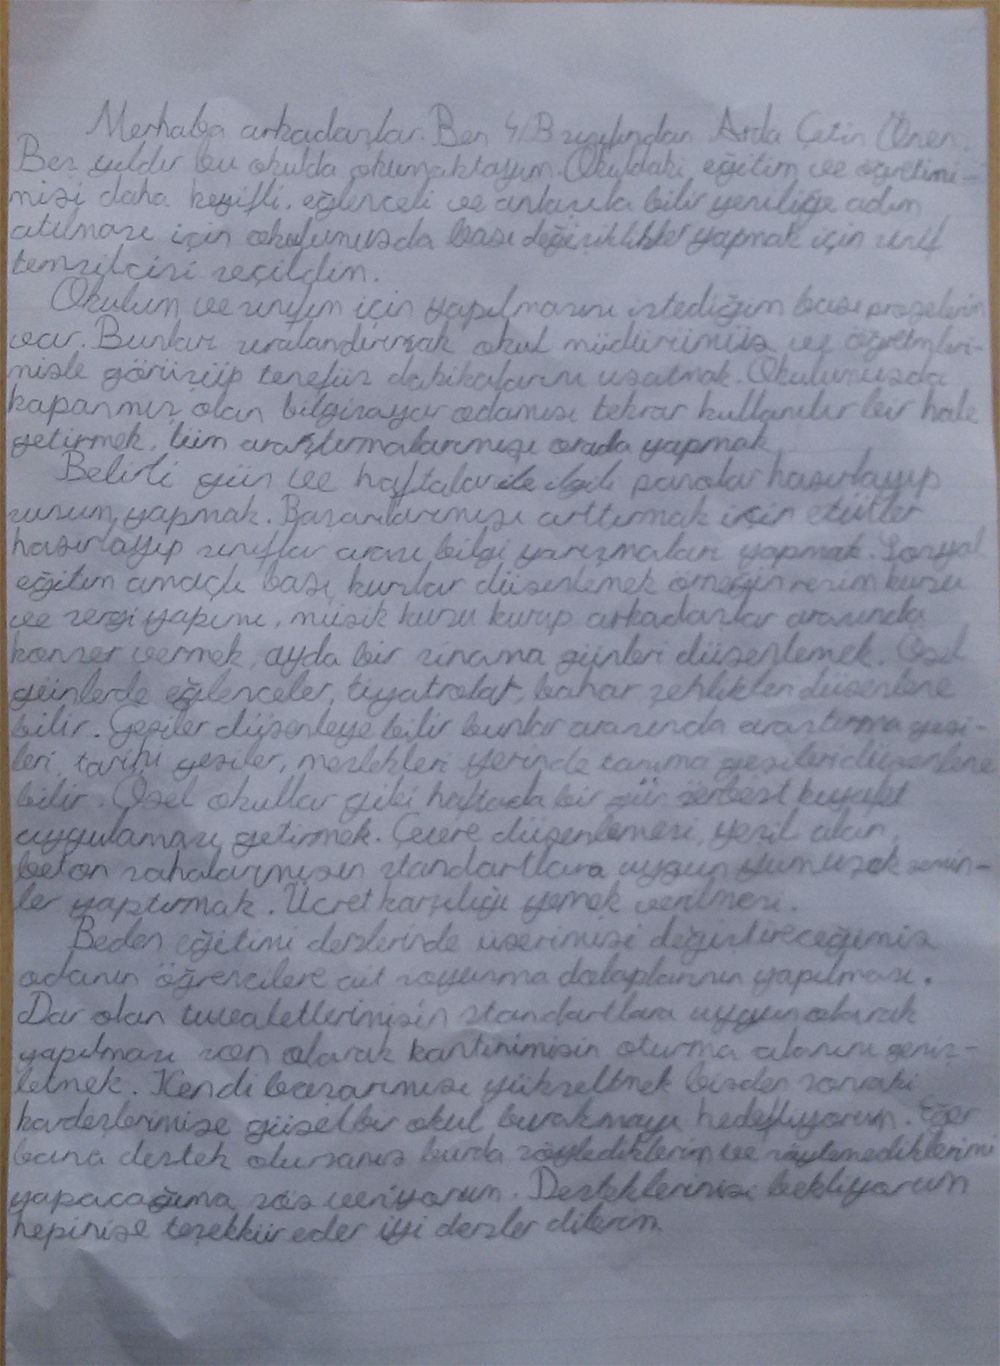 Merhaba arkadaşlar. Ben 4/B sınıfından Arda Çetin Öner.
Beş yıldır bu okulda okumaktayım. Okuldaki eğitim ve öğretimi-
mizi daha keyifli, eğlenceli ve anlaşıla bilir yeniliğe adım
atılması için okulumuzda bazı değişiklikler yapmak için sınıf
temsilcisi seçildim.
Okulum ve sınıfım için yapılmasını istediğim bazı projelerim
var. Bunları sıralandırırsak okul müdürümüz ve öğretmleri-
mizle görüşüp tenefüs dakikalarını uzatmak. Okulumuzda
kapanmış olan bilgisayar odamızı tekrar kullanılır bir hale
getirmek, tüm araştırmalarımızı orada yapmak
Belirli gün ve haftalar ile ilgili panolar hazırlayıp
sunum yapmak. Başarılarımızı arttırmak için etütler
hazırlayıp sınıflar arası bilgi yarışmaları yapmak. Sosyal
eğitim amaçlı bazı kurslar düzenlemek örneğin resim kursu
ve sergi yapımı, müzik kursu kurup arkadaşlar arasında
konser vermek, ayda bir sinama günleri düzenlemek. Özel
günlerde eğlenceler, tiyatrolar, bahar şenlikleri düzenlene
bilir. Geziler düzenleye bilir bunlar arasında araştırma gezi-
leri, tarihi geziler, meslekleri yerinde tanıma gezileri düzenlene
bilir. Özel okullar gibi haftada bir gün serbest kıyafet
uygulaması getirmek. Çevre düzenlemesi, yeşil alan,
beton sahalarımızın standartlara uygun yumuşak zemin-
ler yaptırmak. Ücret karşılığı yemek verilmesi.
Beden eğitimi derslerinde üzerimizi değiştireceğimiz
odanın öğrencilere ait soyunma dolaplarının yapılması.
Dar olan tuvaletlerimizin standartlara uygun olarak
yapılması son olarak kantinimizin oturma alanını geniş-
letmek. Kendi başarımızı yükseltmek bizden sonraki
kardeşlerimize güzel bir okul bırakmayı hedefliyorum. Eğer
bana destek olursanız burda söylediklerim ve söylemediklerimi
yapacağıma söz veriyorum. Desteklerinizi bekliyorum
hepinize teşekkür eder iyi dersler dilerim